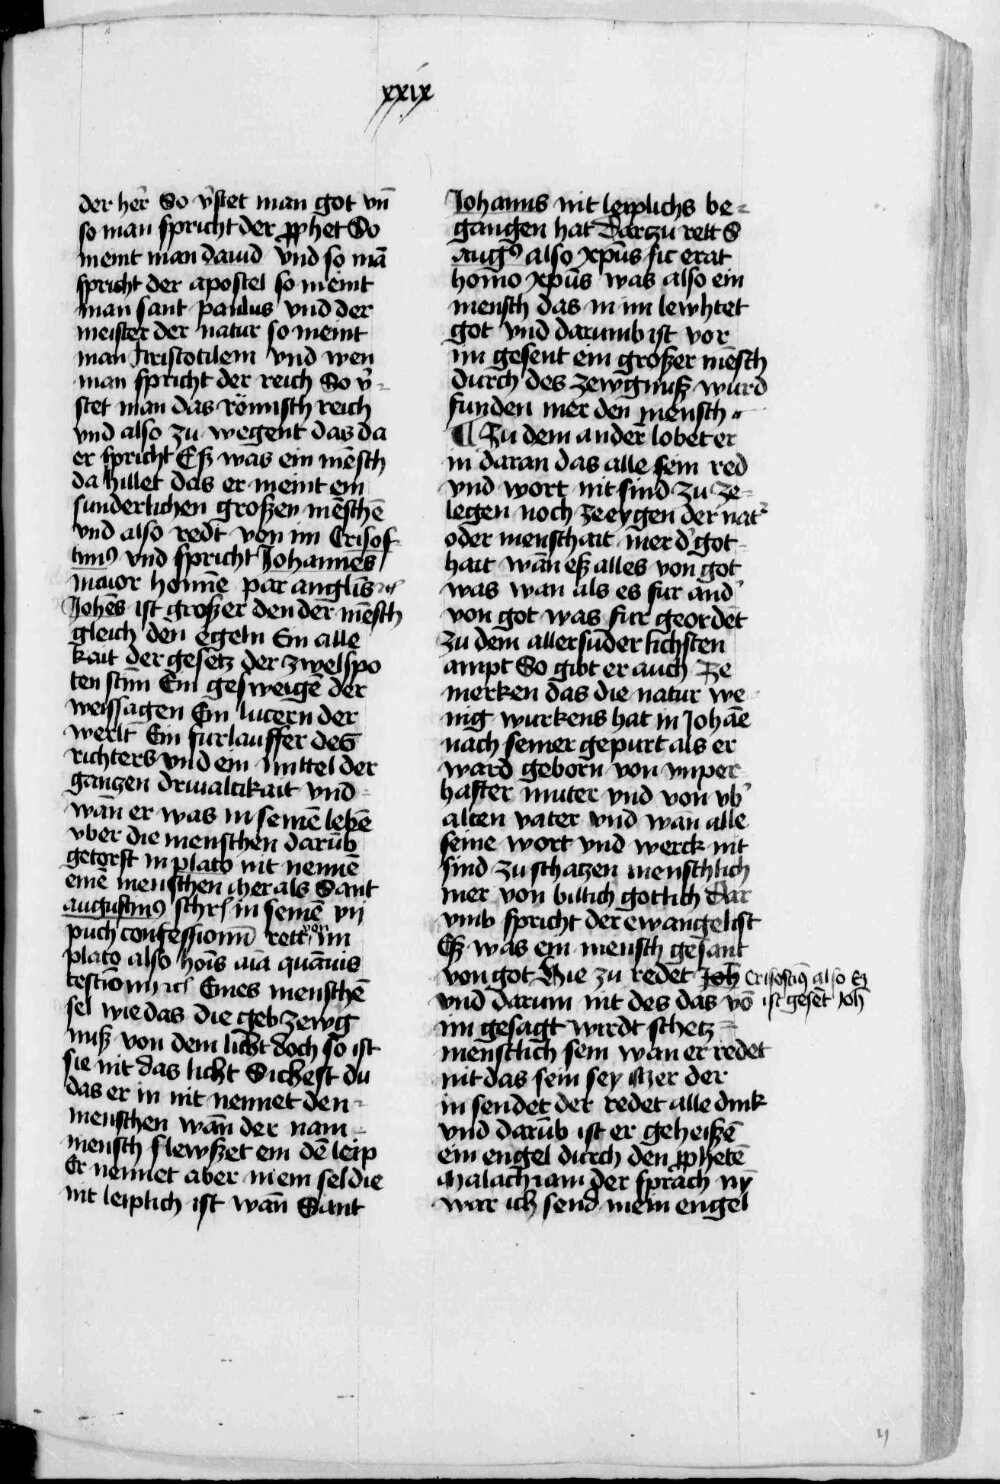 xxix
der her̄ So v̓stet man got vn̄
so man spricht der ꝓphet So
meint man dauid vnd so mā
spricht der apostel so meint
man sant paulus vnd der
meister der natur so meint
man Aristotilem vnd wen
man spricht der reich So v̓-
stet man das römisch reich
vnd also zu wegent das da
er spricht Eß was ein mēsch
da hillet das er meint ein
sunderlichen großen mēschē
vnd also redt von im Crisos-
tm9 vnd spricht Johannes
maior homīe par anglis
Johēs ist großer den der mēsch
gleich den egeln Ein alle
kait der gesetz der zwelfpo
ten stim Ein gesweigē der
weissagen Ein lucern der
werlt Ein furlauffer des
richters vnd ein mittel der
gantzen driualtikait vnd
wan̄ er was in seinē lebē
vber die menschen darūb
getorst in plato nit nennē
einē menschen Mer als Sant
augustin9 schrͥ in seinē vij
puch confessionū rett von im
plato also hoīs aīa quāuis
testiōniū rc Eines menschē
sel wie das die geb zewg
nuß von dem licht doch so ist
sie nit das licht Sichest du
das er in nit nennet den
menschen wan̄ der nam-
mensch slewßet ein dē leip
Er nennet aber niem sel die
nit leiplich ist wan̄ Sant
Johanns nit leiplichs be-
gangen hat Darczu rett S
Aug9 also xp̄us sic erat
homo xp̄us was also ein
mensch das in im lewhtet
got vnd darumb ist vor
im gesent ein großer mēsch
durch des zewgnuß wurd
funden mer den mensch
¶ Zu dem ander̄ lobet er
in daran das alle sein red
vnd wort nit sind zu ze-
legen noch zeeygen der nat̓
oder menschait mer d̓ got-
hait wan̄ eß alles von got
was wan als es fur and̓
von got was fur geordēt
zu dem allersūderlichsten
ampt So gibt er auch Ze
merken das die natur we-
nig wurkens hat in Johāē
nach seiner gepurt als er
ward geborn von vnper-
hafter muter vnd von vb̓
alten vater vnd wan alle
seine wort vnd werck nit
sind zu schatzen menschlich
mer von billich gotlich Dar
vmb spricht der ewangelist
Eß was ein mensch gesant
von got Hie zu redet Joh Crisosti9 also Eß
vnd darum nit des das vō ist gesēt Joh̄
im gesagt wirdt schetz-
menschlich sein wan er redet
nit das sein sey Mer der
in sendet der redet alle dink
vnd darūb ist er geheißē
ein engel durch den ꝓphetē
Malachiam der sprach nȳ
war ich send mein engel